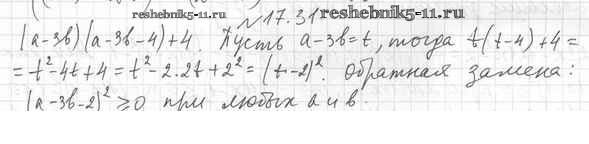 reshebnik5-11.ru №17.31 reshebnik5-11.ru
(a-3в)(a-3в-4)+4. Пусть a-3в=t, тогда t(t-4)+4=
=t²-4t+4=t²-2·2t+2²=(t-2)². Обратная замена:
(a-3в-2)²≥0 при любых a и в.